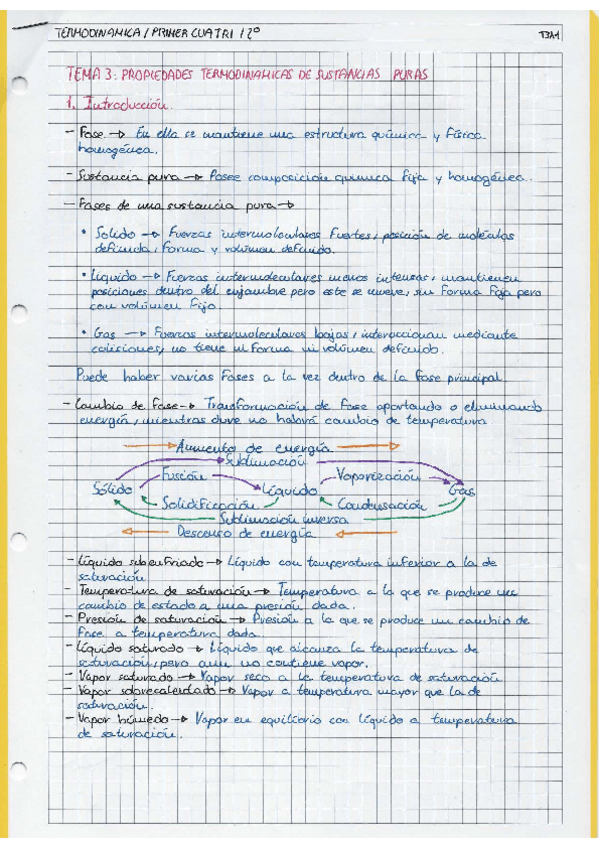 TERMODINAMICA / PRIMER CUATRI / 2º
T3A1
TEMA 3: PROPIEDADES TERMODINAMICAS DE SUSTANCIAS PURAS
1. Introducción.
- Fase → En ella se mantiene una estructura química y física
homogénea.
- Sustancia pura → Posee composición química fija y homogénea.
- Fases de una sustancia pura →
• Solido → Fuerzas intermoleculares fuertes, posición de moléculas
definida, forma y volúmen definido.
• Líquido → Fuerzas intermoleculares menos intensas, mantienen
posiciones dentro del enjambre pero este se mueve, sin forma fija pero
con volúmen fijo.
• Gas → Fuerzas intermoleculares bajas, interaccionan mediante
colisiones, no tiene ni forma ni volúmen definido.
Puede haber varias fases a la vez dentro de la fase principal.
- Cambio de fase → Transformación de fase aportando o eliminando
energía, mientras dure no habrá cambio de temperatura
Aumento de energía
Sublimación
Fusión Vaporización
Sólido Líquido Gas
Solidificación Condensación
Sublimación inversa
Descenso de energía
- Líquido subenfriado → Líquido con temperatura inferior a la de
saturación
- Temperatura de saturación → Temperatura a la que se produce un
cambio de estado a una presión dada.
- Presión de saturación → Presión a la que se produce un cambio de
fase a temperatura dada.
- Líquido saturado → Líquido que alcanza la temperatura de
saturación, pero aun no contiene vapor.
- Vapor saturado → Vapor seco a la temperatura de saturación
- Vapor sobrecalentado → Vapor a temperatura mayor que la de
saturación.
- Vapor húmedo → Vapor en equilibrio con líquido a temperatura
de saturación.